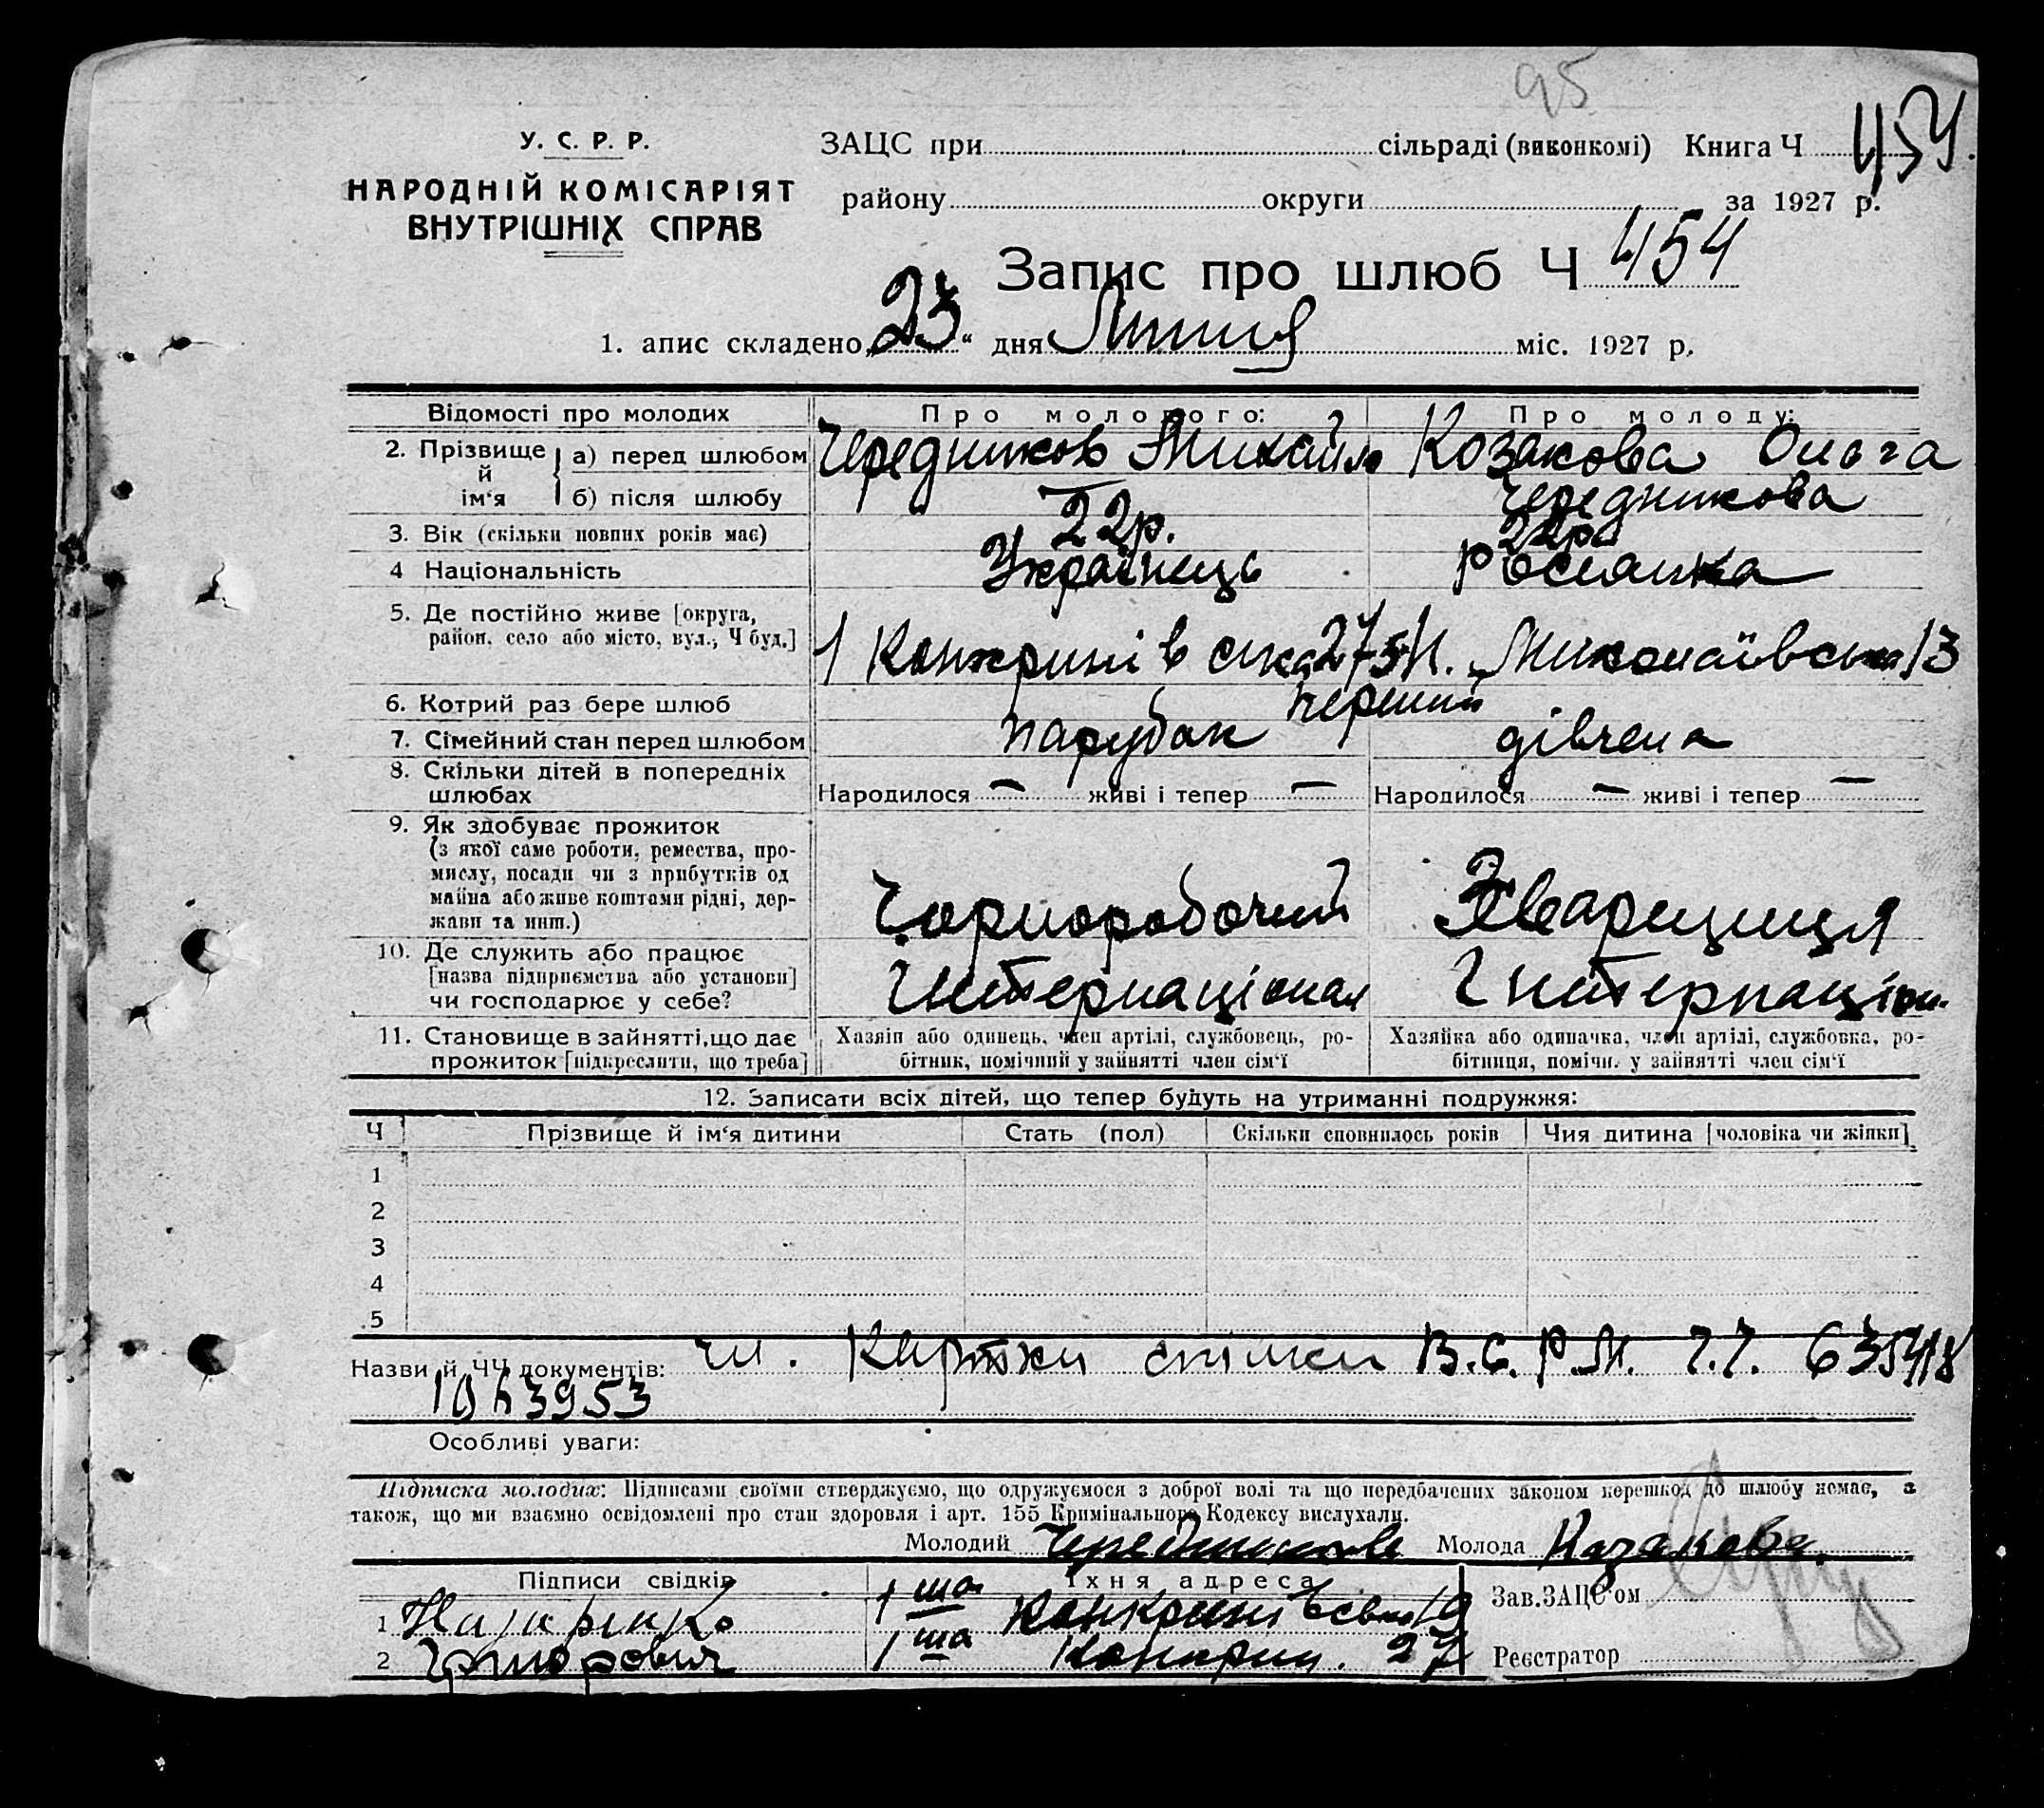 95
У. С. Р. Р.
НАРОДНІЙ КОМІСАРІЯТ
ВНУТРІШНІХ СПРАВ
ЗАЦС при сільраді (виконкомі) Книга Ч 454.
району округи за 1927 р.
Запис про шлюб Ч 454
1. апис складено „23“ дня Липня міс. 1927 р.
Відомості про молодих Про молодого: Про молоду:
2. Прізвище й ім‘я а) перед шлюбом Чередников Михайло Козакова Ольга
б) після шлюбу — Чередникова
3. Вік (скільки повних років має) 22р. 22р.
4 Національність Українець Росіянка
5. Де постійно живе [округа,
район. село або місто, вул., Ч буд.] 1 Канкринівська 27 Миколаївська 13
6. Котрий раз бере шлюб перший
7. Сімейний стан перед шлюбом парубак дівчена
8. Скільки дітей в попередніх
шлюбах Народилося — живі і тепер — Народилося — живі і тепер —
9. Як здобуває прожиток
(з якої саме роботи, ремества, про-
мислу, посади чи з прибутків од
майна або живе коштами рідні, дер-
жави та инш.) Чорноробочий Зварщиця
10. Де служить або працює
[назва підприємства або установи]
чи господарює у себе? Интернаціонал Интернаціон.
11. Становище в зайнятті, що дає
прожиток [підкреслити, що треба]
Хазяїн або одинець, член артілі, службовець, ро-
бітник, помічний у зайнятті член сім‘ї
Хазяйка або одиначка, член артілі, службовка, ро-
бітниця, помічн. у зайнятті член сім‘ї
12. Записати всіх дітей, що тепер будуть на утриманні подружжя:
Ч Прізвище й ім‘я дитини Стать (пол) Скільки сповнилось років Чия дитина [чоловіка чи жінки]
1
2
3
4
5
Назви й ЧЧ документів: чл. Картки спілки В.С.Р.М. Ч.Ч. 635418
Особливі уваги:
Підписка молодих: Підписами своїми стверджуємо, що одружуємося з доброї волі та що передбачених законом перешкод до шлюбу немає, а
також, що ми взаємно освідомлені про стан здоровля і арт. 155 Кримінального Кодексу вислухали.
Молодий Чередников Молода Казакова.
Підписи свідків Їхня адреса
1 Назаренко 1ша Канкринівська 19
2 Григорович 1ша Канкрин. 27
Зав. ЗАЦС‘ом
Реєстратор